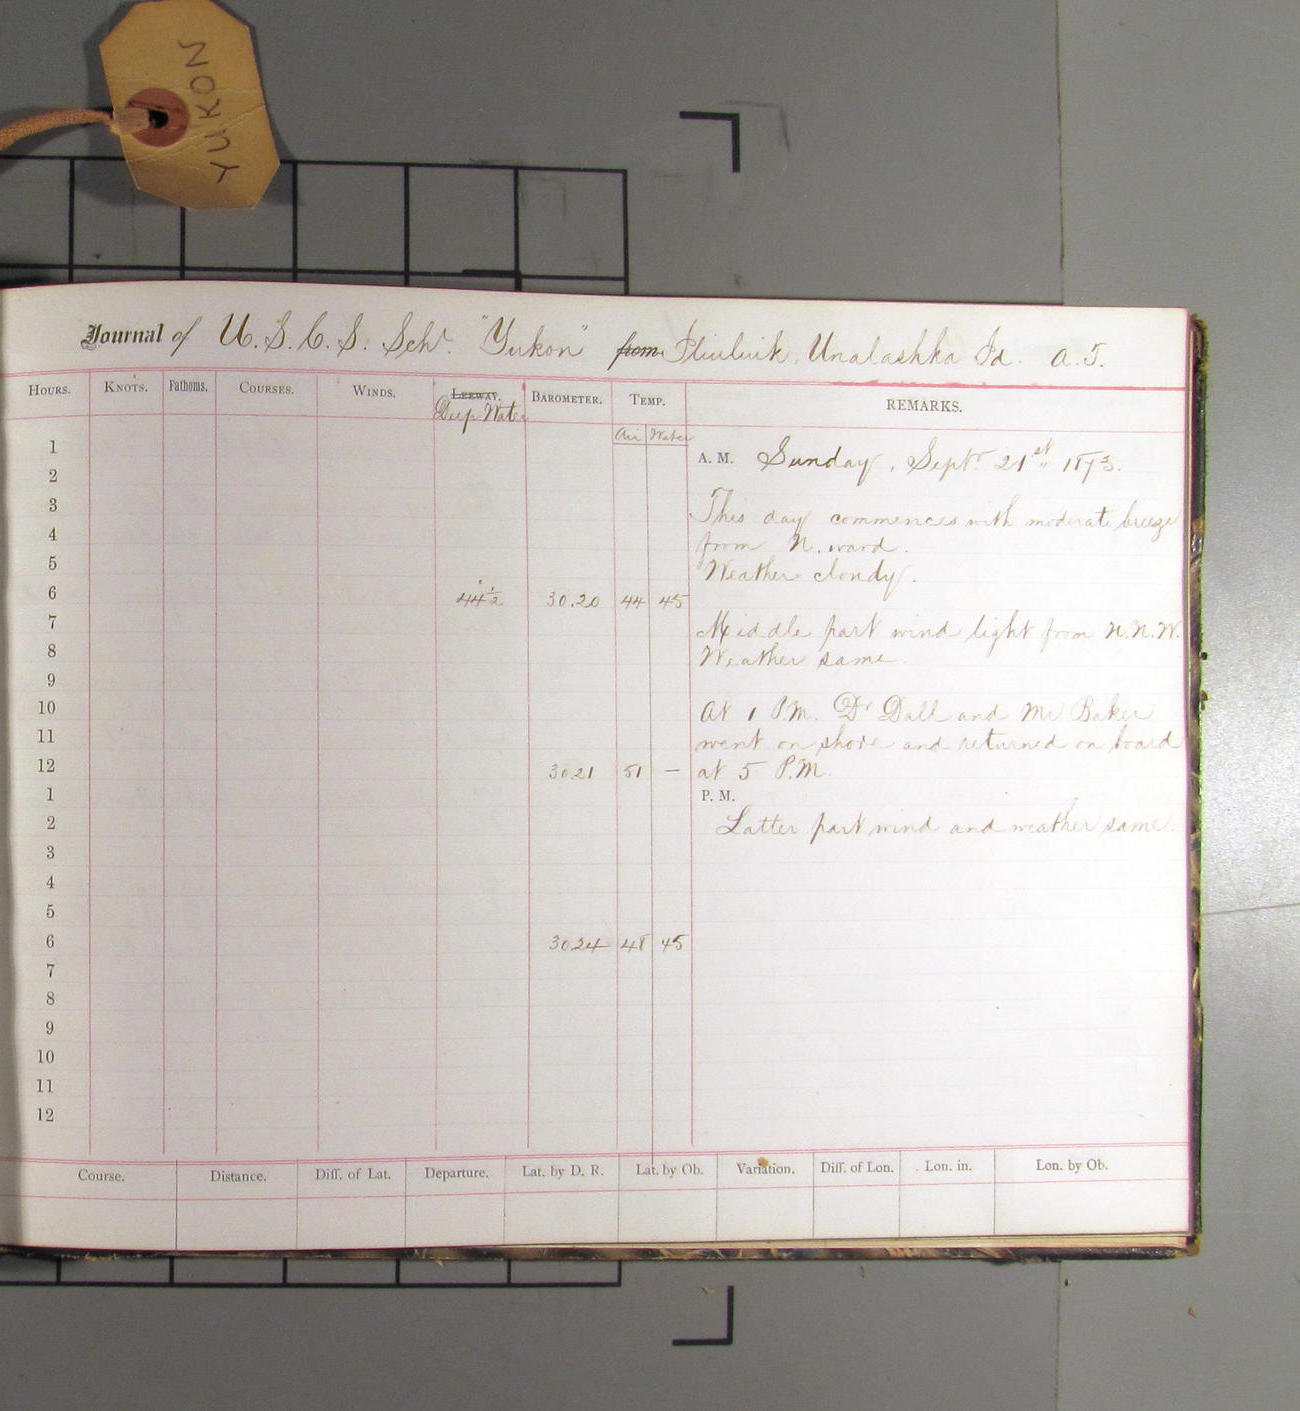 YUKON
Journal of U.S.C.S. Schr. "Yukon" from Iliuliuk, Unalashka Id. A.T.
HOURS. KNOTS. Fathoms. COURSES. WINDS. LEEWAY. BAROMETER. TEMP. REMARKS.
Deep Water
Air Water
1
A. M. Sunday, Septr. 21st 1873.
2
3
This day commences with moderate breeze
4
from N. ward.
5
Weather cloudy.
6 44½ 30.20 44 45
7
Middle part wind light from N.N.W.
8
Weather same.
9
10
At 1 P.M. Dr Dall and Mr Baker
11
went on shore and returned on board
12 30.21 51 — at 5 P.M.
1 P. M.
2
Latter part wind and weather same.
3
4
5
6 30.24 48 45
7
8
9
10
11
12
Course. Distance. Diff. of Lat. Departure. Lat. by D. R. Lat. by Ob. Variation. Diff. of Lon. Lon. in. Lon. by Ob.